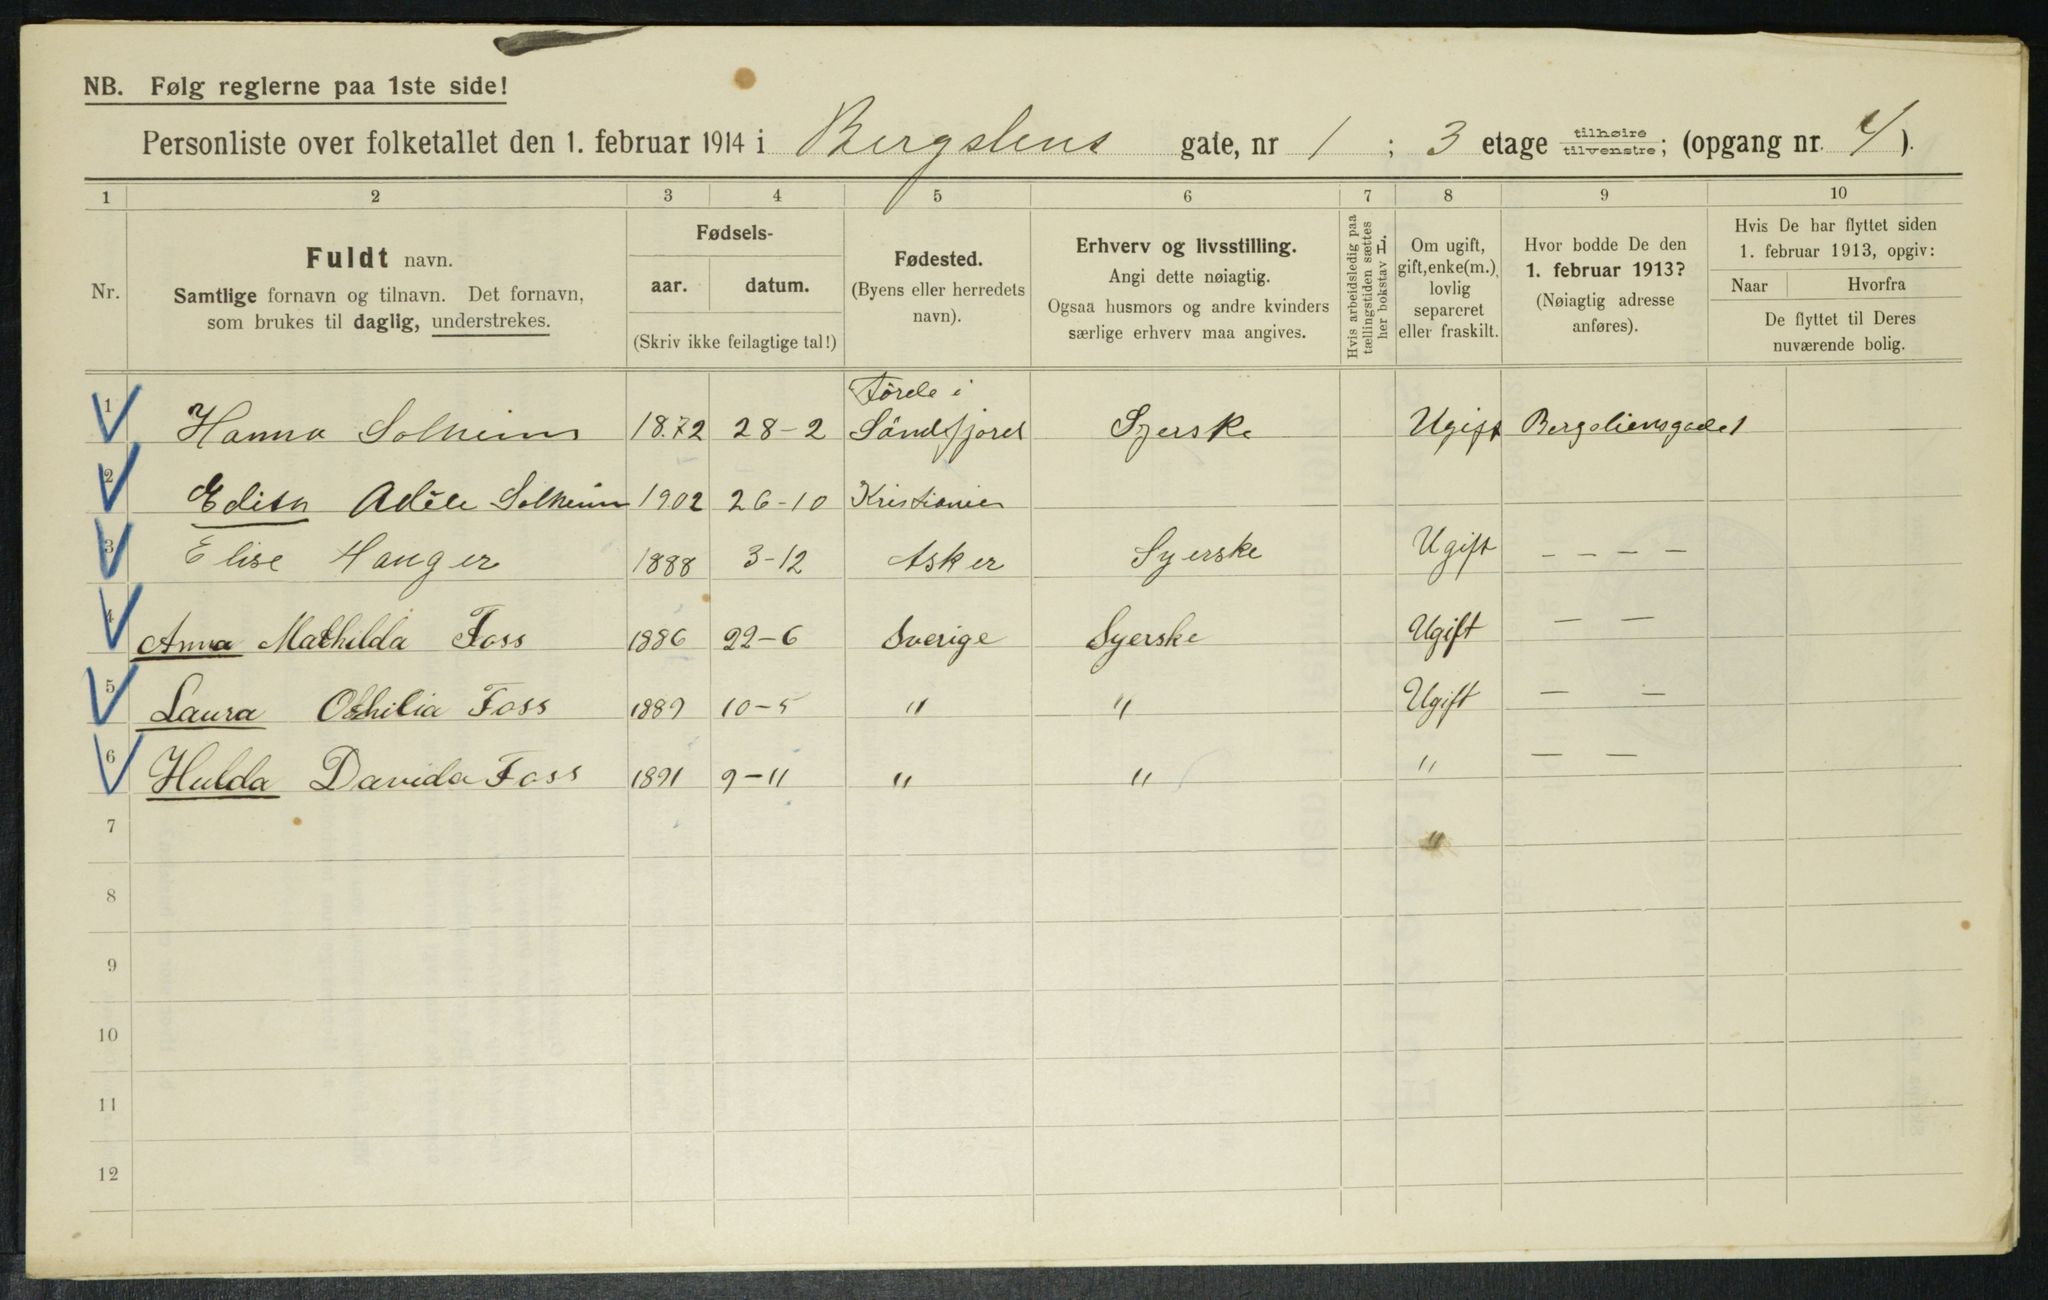 NB. Følg reglerne paa 1ste side!
Personliste over folketallet den 1. februar 1914 i Bergslens gate, nr 1 ; 3 etage tilhøire tilvenstre; (opgang nr. 4).
1 2 3 4 5 6 7 8 9 10
Nr.
Fuldt navn.
Samtlige fornavn og tilnavn. Det fornavn,
som brukes til daglig, understrekes.
Fødsels-
aar. datum.
(Skriv ikke feilagtige tal!)
Fødested.
(Byens eller herredets
navn).
Erhverv og livsstilling.
Angi dette nøiagtig.
Ogsaa husmors og andre kvinders
særlige erhverv maa angives.
Hvis arbeidsledig paa
tællingstiden sættes
her bokstav L.
Om ugift,
gift, enke(m.),
lovlig
separeret
eller fraskilt.
Hvor bodde De den
1. februar 1913?
(Nøiagtig adresse
anføres).
Hvis De har flyttet siden
1. februar 1913, opgiv:
Naar Hvorfra
De flyttet til Deres
nuværende bolig.
1 Hanna Solheim 1872 28-2 Förde i Söndfjord Syerske Ugift Bergsliensgade 1
2 Edith Adèle Solheim 1902 26-10 Kristiania
3 Elise Hanger 1888 3-12 Asker Syerske Ugift – – – –
4 Anna Mathilda Foss 1886 22-6 Sverige Syerske Ugift – –
5 Laura Othilia Foss 1889 10-5 " " Ugift – –
6 Hulda Davida Foss 1891 9-11 " " " – –
7 "
8
9
10
11
12